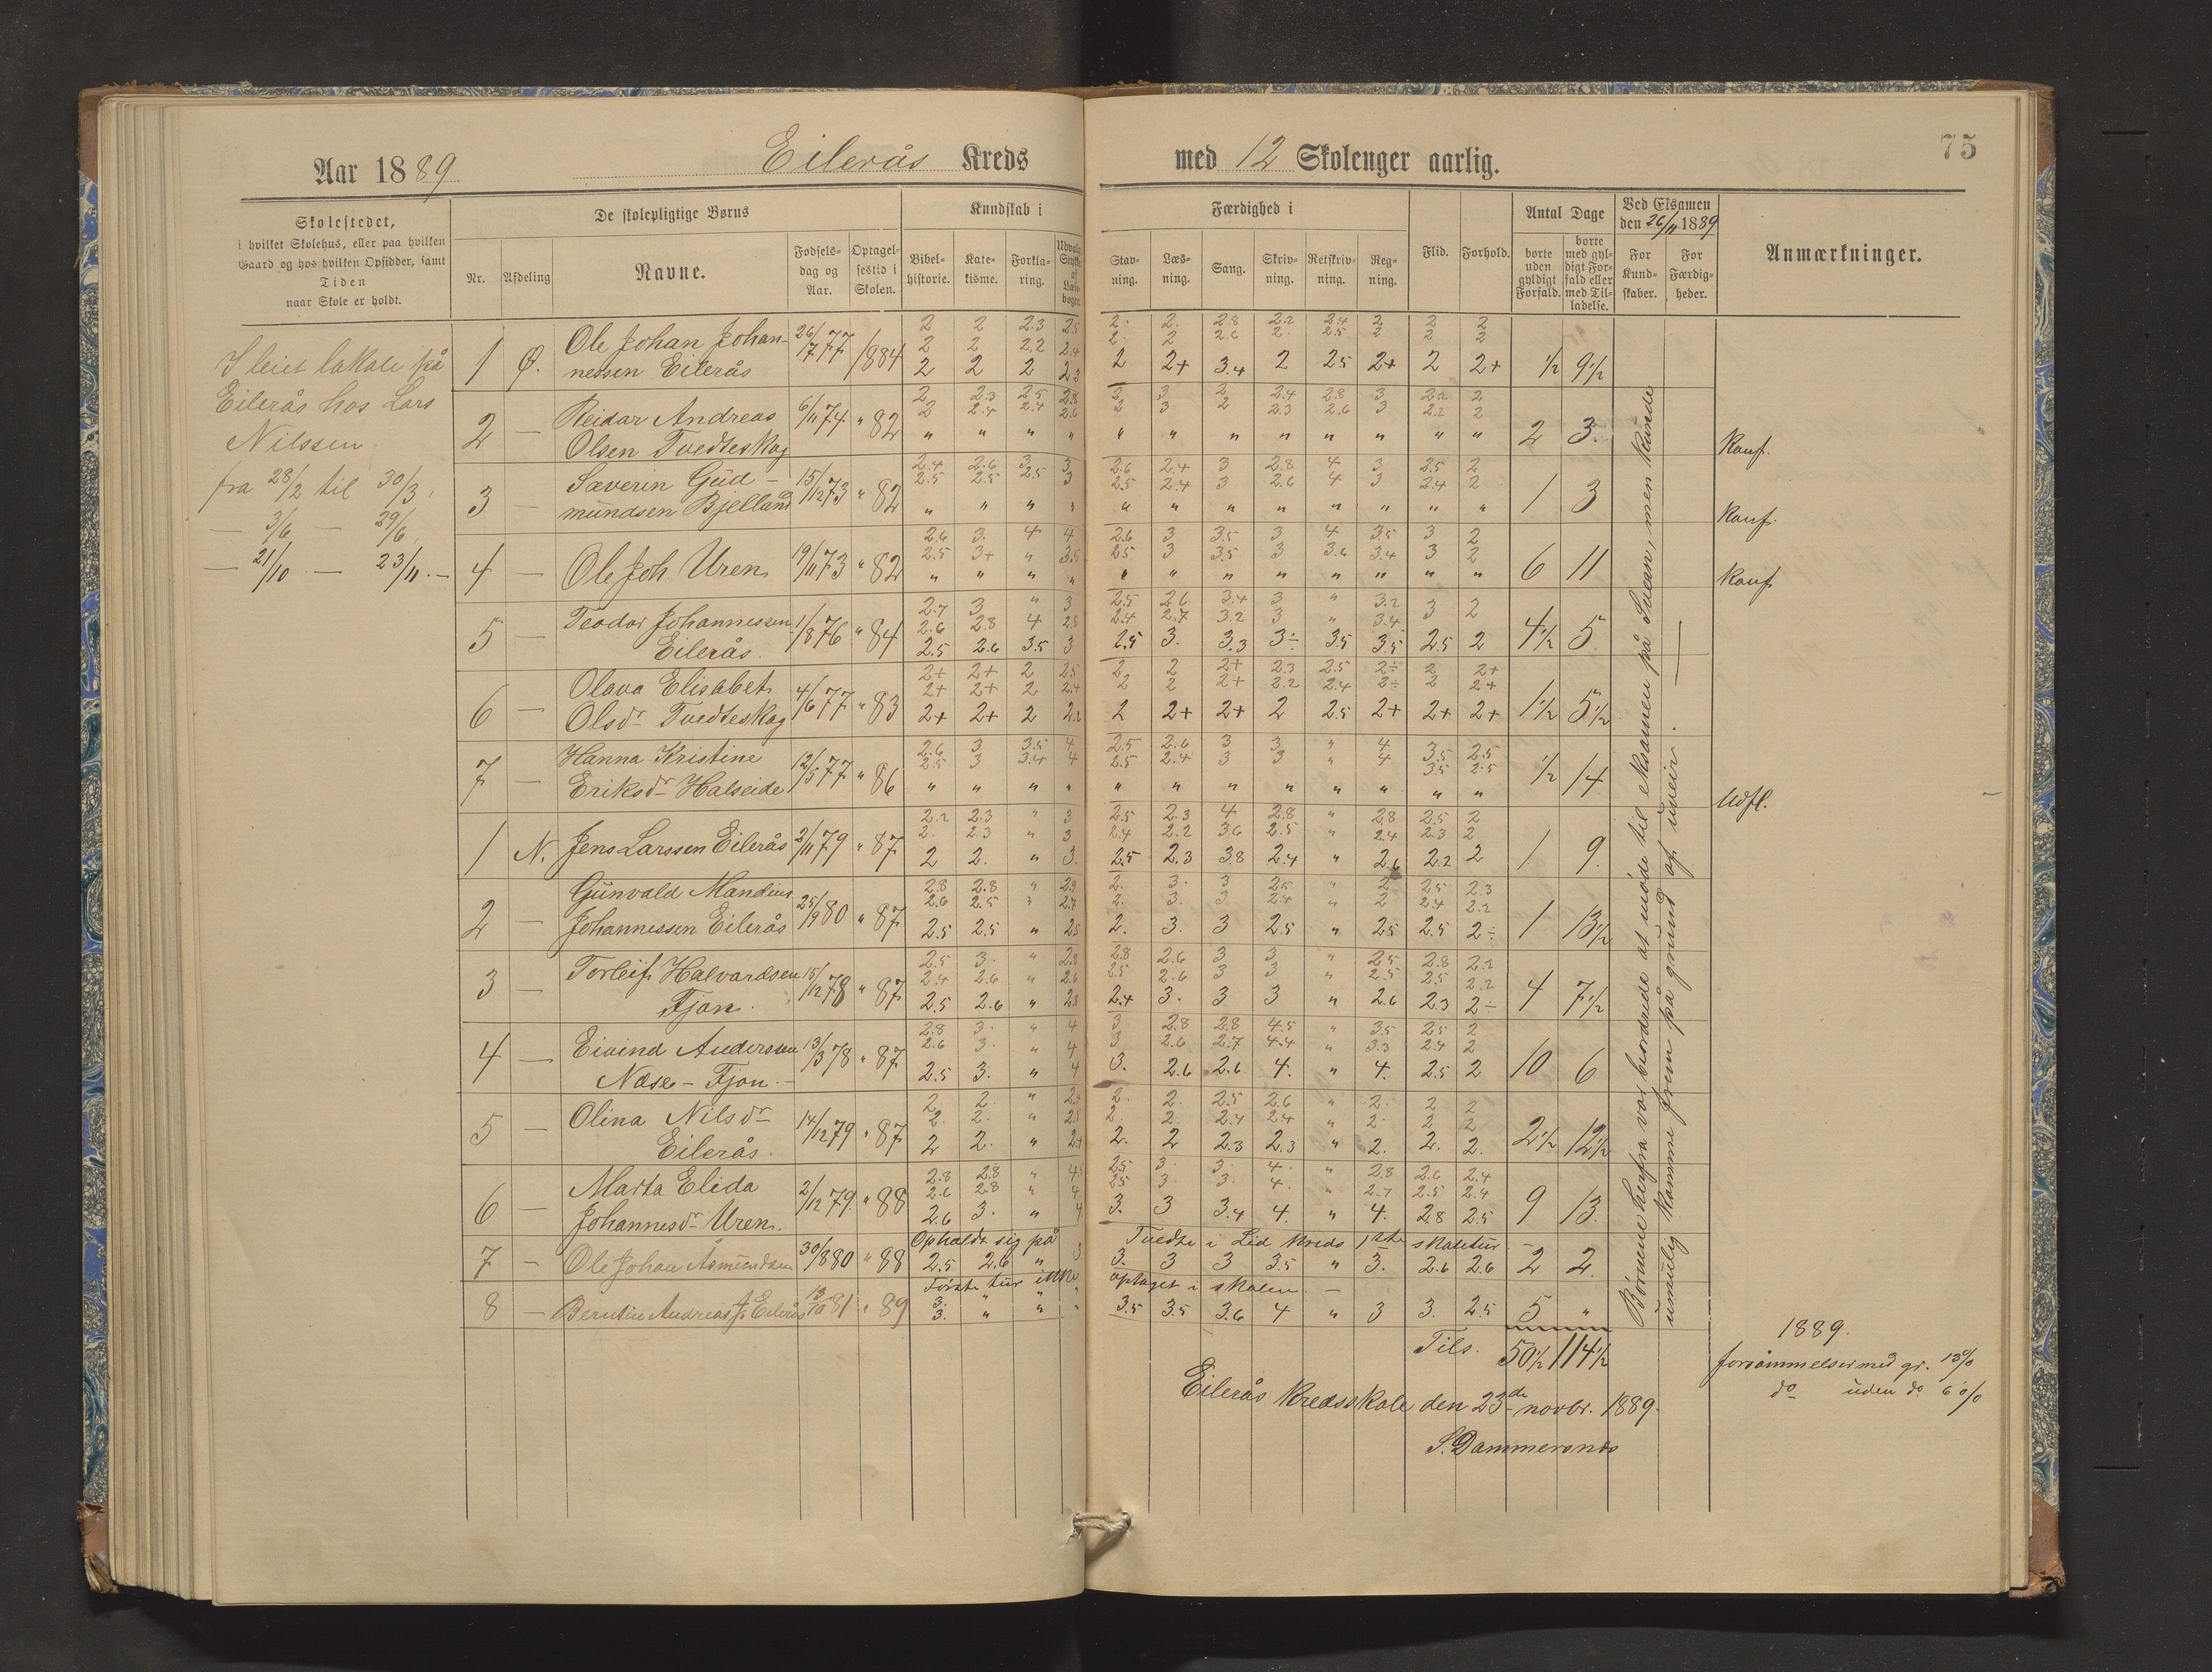 75
Aar 1889 Eilerås Kreds med 12 Skolenger aarlig.
Skolestedet,
i hvilket Skolehus, eller paa hvilken
Gaard og hos hvilken Opsidder, samt
Tiden
naar Skole er holdt.
De skolepligtige Børns
Nr. Afdeling Navne. Fødsels- dag og Aar. Optagel- sestid i Skolen.
Kundskab i
Bibel- historie. Kate- kisme. Forkla- ring. Udvalgte Stykker af Læse- bogen.
Færdighed i
Stav- ning. Læs- ning. Sang. Skriv- ning. Retskriv- ning. Reg- ning.
Flid. Forhold.
Antal Dage
borte uden gyldigt Forfald. borte med gyl- digt For- fald eller med Til- ladelse.
Ved Eksamen
den 26/11 1889
For Kund- skaber. For Færdig- heder.
Anmærkninger.
I leiet lokale på
Eilerås hos Lars
Nilssen
fra 28/2 til 30/3,
— 3/6 — 29/6,
— 21/10 — 23/11. —
2 2 2.3 2.5 2. 2. 2.8 2.2 2.4 2 2 2
2 2 2.2 2.4 2. 2 2.6 2. 2.5 2 2 2
1 Ø. Ole Johan Johan- nessen Eilerås 26/7 77 1884 2 2 2 2.3 2 2+ 3.4 2 2.5 2+ 2 2+ 1/2 9 1/2
2 2.3 2.5 2.8 2 3 2 2.4 2.8 3 2.2 2
2 2.4 2.4 2.6 2 3 2 2.3 2.6 3 2.2 2
2 — Reidar Andreas Olsen Tvedteskog 6/11 74 " 82 " " " " " " " " " " " " 2 3. Konf.
2.4 2.6 3 3 2.6 2.4 3 2.8 4 3 2.5 2
2.5 2.5 2.5 3 2.5 2.4 3 2.6 4 3 2.4 2
3 — Sæverin Gud- mundsen Bjelland 15/12 73 " 82 " " " " " " " " " " " " 1 3 Konf.
2.6 3. 4 4 2.6 3 3.5 3 4 3.5 3 2
2.5 3+ " 3.5 2.5 3 3.5 3 3.6 3.4 3 2
4 — Ole Joh. Uren 19/11 73 " 82 " " " " " " " " " " " " 6 11 Konf.
2.7 3 " 3 2.5 2.6 3.4 3 " 3.2 3 2
2.6 2.8 4 2.8 2.4 2.7 3.2 3 " 3.4
5 — Teodor Johannessen Eilerås. 1/8 76 " 84 2.5 2.6 3.5 3 2.5 3. 3.3 3÷ 3.5 3.5 2.5 2 4 1/2 5
2+ 2+ 2 2.5 2 2 2+ 2.3 2.5 2÷ 2 2+
2+ 2+ 2 2.4 2 2 2+ 2.2 2.4 2÷ 2 2+
6 — Olava Elisabet Olsdr Tvedteskog 4/6 77 " 83 2+ 2+ 2 2.2 2 2+ 2+ 2 2.5 2+ 2+ 2+ 1 1/2 5 1/2
2.6 3 3.5 4 2.5 2.6 3 3 " 4 3.5 2.5
2.5 3 3.4 4 2.5 2.4 3 3 " 4 3.5 2.5
7 — Hanna Kristine Eriksdr Halseide 12/5 77 " 86 " " " " " " " " " " " " 1/2 14 Udfl.
2.2 2.3 " 3 2.5 2.3 4 2.8 " 2.8 2.5 2
2. 2.3 " 3 2.4 2.2 3.6 2.5 " 2.4 2.3 2
1 N. Jens Larssen Eilerås 2/11 79 " 87 2 2. " 3. 2.5 2.3 3.8 2.4 " 2.6 2.2 2 1 9.
2.8 2.8 " 2.9 2. 3. 3 2.5 " 2 2.5 2.3
2.6 2.5 " 2.7 2. 3. 3 2.4 " 2 2.4 2.2
2 — Gunvald Mandius Johannessen Eilerås 25/9 80 " 87 2.5 2.5 " 2.5 2. 3. 3 2.5 " 2.5 2.5 2÷ 1 13 1/2
2.5 3. " 2.8 2.8 2.6 3 3 " 2.5 2.8 2.2
2.4 2.6 " 2.6 2.5 2.6 3 3 " 2.5 2.5 2.2
3 — Torleif Halvardsen Fjon. 15/12 78 " 87 2.5 2.6 " 2.8 2.4 3. 3 3 " 2.6 2.3 2÷ 4 7 1/2
2.8 3. " 4 3 2.8 2.8 4.5 " 3.5 2.5 2
2.6 3. " 4 3 2.6 2.7 4.4 " 3.3 2.4 2
4 — Eivind Andersen Næse-Fjon. 13/3 78 " 87 2.5 3. " 4 3. 2.6 2.6 4. " 4. 2.5 2 10 6
2. 2. " 2.4 2. 2. 2.5 2.6 " 2. 2 2
2. 2. " 2.5 2. 2. 2.4 2.4 " 2. 2 2
5 — Olina Nilsdr Eilerås. 14/12 79 " 87 2 2. " 2.4 2. 2 2.3 2.3 " 2. 2. 2. 2 1/2 12 1/2
2.8 2.8 " 4.5 2.5 3. 3. 4. " 2.8 2.6 2.4
2.6 2.8 " 4. 2.5 3 3. 4. " 2.7 2.5 2.4
6 — Marta Elida Johannesdr Uren. 2/12 79. " 88 2.6 3. " 4 3. 3 3.4 4. " 4. 2.8 2.5 9 13.
Opholdt sig på Tvedte i Lid Kreds 1ste skoletur —
7 — Ole Johan Åsmundsen 30/8 80 " 88 2.5 2.6 " 3 3. 3 3 3.5 " 3. 2.6 2.6 2 2.
Første tur ikke optaget i skolen —
8 — Berntin Andreas J. Eilerås 13/10 81 " 89 3. 3. " " " 3.5 3.5 3.6 4 " 3 3. 2.5 5 "
Børnene herfra var beordrede at møde til eksamen på Sveen, men kunde
umulig komme frem på grund af uveir.
Tils. 50 1/2 114 1/2
1889.
forsømmelser med gr. 13%
do uden do 6%
Eilerås Kredsskole den 23de novbr. 1889.
S. Dammersnes